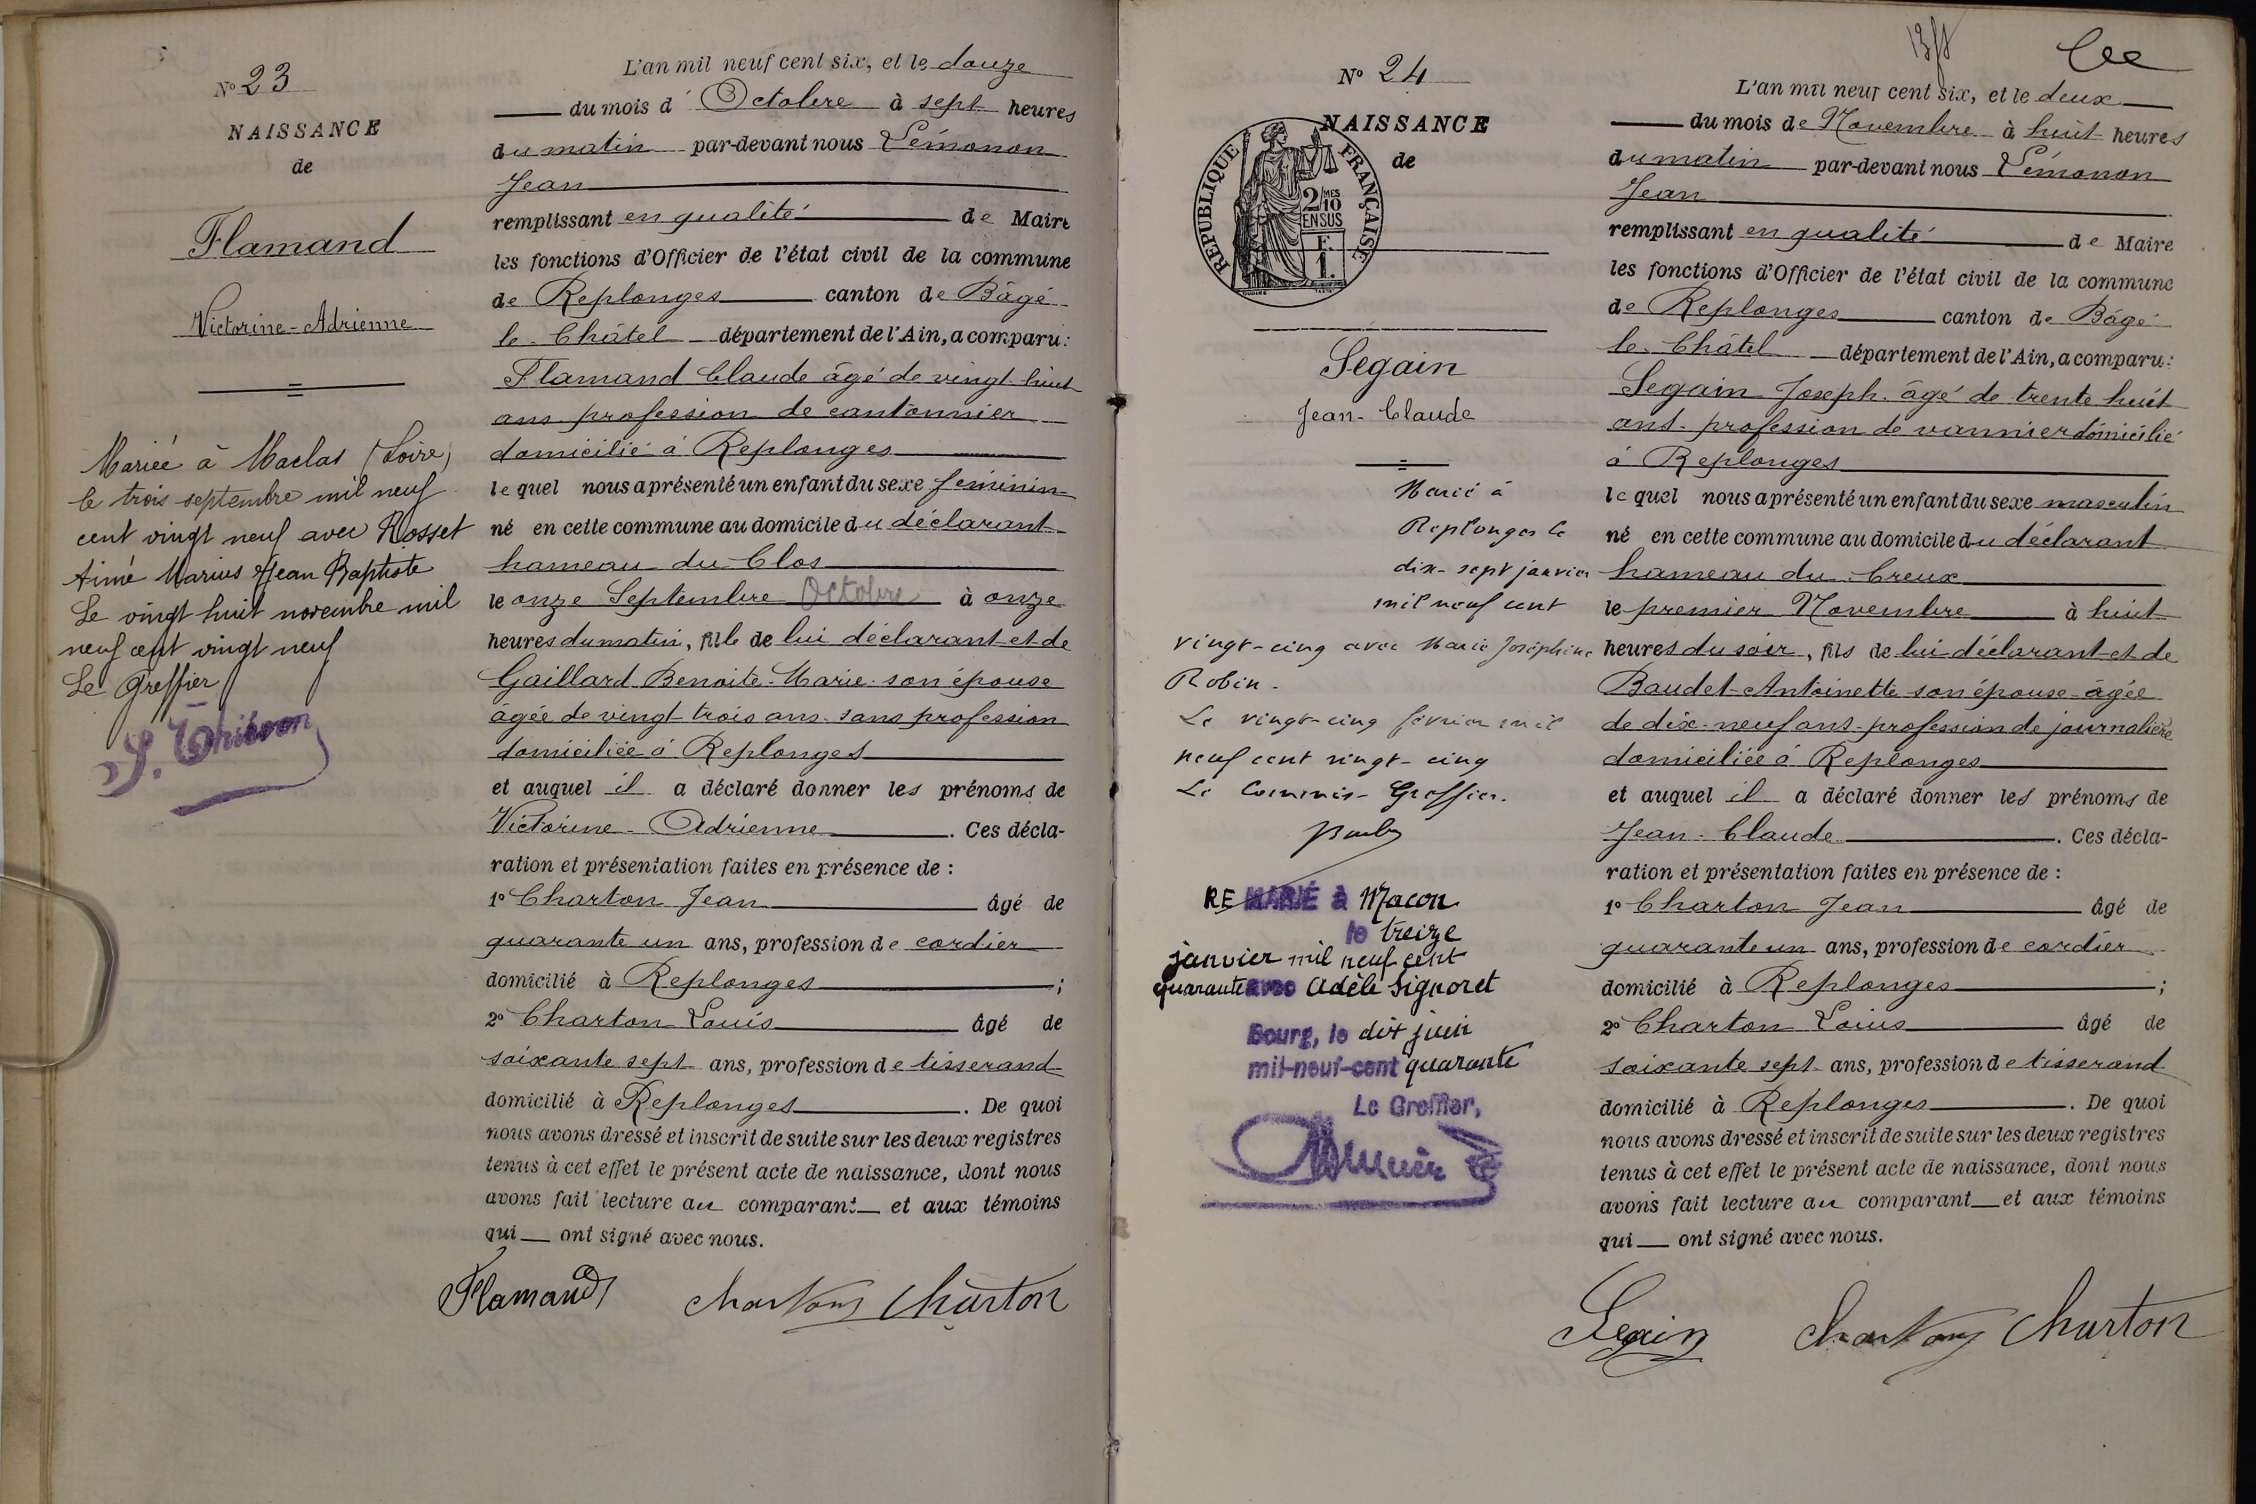 N° 23
NAISSANCE
de
Flamand
Victorine-Adrienne
Mariée à Maclas (Loire)
le trois septembre mil neuf
cent vingt neuf avec Rosset
Aimé Marius Jean Baptiste
Le vingt huit novembre mil
neuf cent vingt neuf
Le Greffier
L'an mil neuf cent six, et le douze
du mois d'Octobre à sept heures
du matin par-devant nous Lémonon
Jean
remplissant en qualité de Maire
les fonctions d'Officier de l'état civil de la commune
de Replonges canton de Bâgé
le Châtel département de l'Ain, a comparu:
Flamand Claude âgé de vingt huit
ans profession de cantonnier
domicilié à Replonges
lequel nous a présenté un enfant du sexe féminin
né en cette commune au domicile du déclarant
hameau du Clos
le onze Septembre Octobre à onze
heures du matin, fille de lui déclarant et de
Gaillard Benoite-Marie son épouse
âgée de vingt trois ans sans profession
domiciliée à Replonges
et auquel il a déclaré donner les prénoms de
Victorine-Adrienne. Ces décla-
ration et présentation faites en présence de :
1° Charton Jean âgé de
quarante un ans, profession de cordier
domicilié à Replonges ;
2° Charton Louis âgé de
soixante sept ans, profession de tisserand
domicilié à Replonges. De quoi
nous avons dressé et inscrit de suite sur les deux registres
tenus à cet effet le présent acte de naissance, dont nous
avons fait lecture au comparant et aux témoins
qui ont signé avec nous.
Flamand Charton Charton
N° 24
NAISSANCE
de
RÉPUBLIQUE FRANÇAISE
2/10 MES
EN SUS
F.
1.
Segain
Jean-Claude
Marié à
Replonges le
dix-sept janvier
mil neuf cent
vingt-cinq avec Marie Joséphine
Robin.
Le vingt-cinq février mil
neuf cent vingt-cinq
Le Commis-Greffier.
REMARIÉ à Macon
le treize
janvier mil neuf cent
quarante avec Adèle Signoret
Bourg, le dix juin
mil-neuf-cent quarante
Le Greffier,
L'an mil neuf cent six, et le deux
du mois de Novembre à huit heures
du matin par-devant nous Lémonon
Jean
remplissant en qualité de Maire
les fonctions d'Officier de l'état civil de la commune
de Replonges canton de Bâgé
le Châtel département de l'Ain, a comparu:
Segain Joseph âgé de trente huit
ans profession de vannier domicilié
à Replonges
lequel nous a présenté un enfant du sexe masculin
né en cette commune au domicile du déclarant
hameau du Creux
le premier Novembre à huit
heures du soir, fils de lui déclarant et de
Baudet Antoinette son épouse âgée
de dix-neuf ans profession de journalière
domiciliée à Replonges
et auquel il a déclaré donner les prénoms de
Jean-Claude. Ces décla-
ration et présentation faites en présence de :
1° Charton Jean âgé de
quarante un ans, profession de cordier
domicilié à Replonges ;
2° Charton Louis âgé de
soixante sept ans, profession de tisserand
domicilié à Replonges. De quoi
nous avons dressé et inscrit de suite sur les deux registres
tenus à cet effet le présent acte de naissance, dont nous
avons fait lecture au comparant et aux témoins
qui ont signé avec nous.
Segain Charton Charton